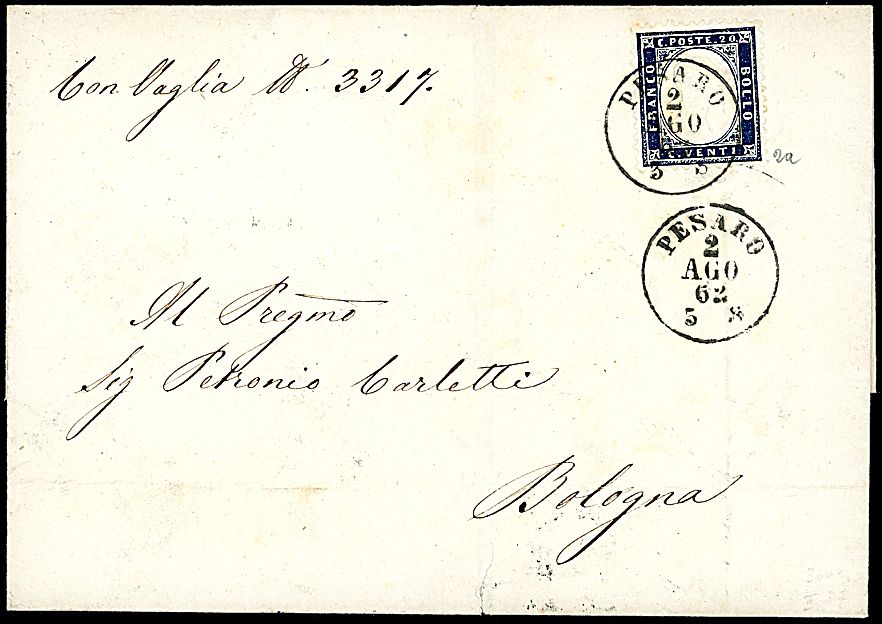 Con Vaglia N. 3317.
C. POSTE. 20.
FRANCO
BOLLO
C. VENTI.
PESARO
2
AGO
5 S
2a
PESARO
2
AGO
62
5 S
Al Pregmo
Sig Petronio Carletti
Bologna